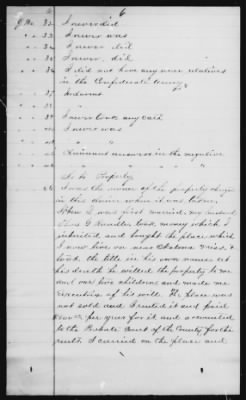 6
Q No. 32. I never did
" " 33. I never was
" " 34. I never did
" " 35. I never did
" " 36. I did not have any near relatives
in the Confederate Army
" " 37.
" "
" " 39. I never took any oath
" " I never was
" " " "
" " Claimant answered in the negative
" " " "
As to Property
I was the owner of the property charged
in this claim when it was taken.
When I was first married, my husband
took money which I
inherited, and bought the place which
I now live on near
took the title in his own name. At
his death he willed the property to me
and our children and made me
Executrix of his will. The place was
not sold and I rented it and paid
per year for it and accounted
to the Probate Court of the County for the
rents. I carried on the place and